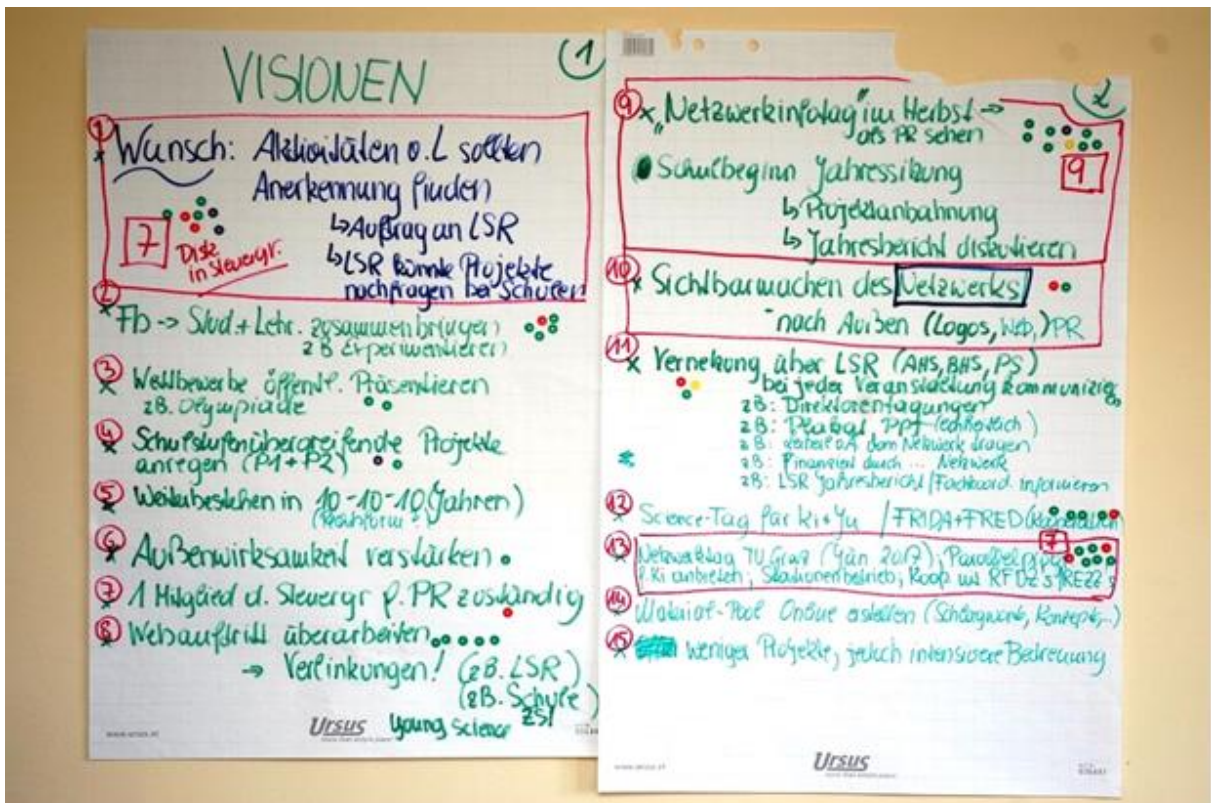 VISIONEN
1
1
Wunsch: Aktivitäten v. L sollten
Anerkennung finden
↳ Auftrag an LSR
7
Disk.
in Steuergr.
↳ LSR könnte Projekte
nachfragen bei Schulen
2
Fb -> Stud + Lehr. zusammenbringen
zB Experimentieren
3
Wettbewerbe öffentl. Präsentieren
zB. Olympiade
4
Schulstufenübergreifende Projekte
anregen (P1+P2)
5
Weiterbestehen in 10-10-10 (Jahren)
6
Außenwirksamkeit verstärken
7
1 Mitglied d. Steuergr f. PR zuständig
8
Webauftritt überarbeiten
→ Verlinkungen! (zB. LSR)
(zB. Schule)
Young Science ZSI
Ursus
www.ursus.at
2
9
"Netzwerkinfotag" im Herbst →
als PR sehen
Schulbeginn Jahressitzung
9
↳ Projektanbahnung
↳ Jahresbericht diskutieren
10
Sichtbarmachen des Netzwerks
nach Außen (Logos, Web,) PR
11
Vernetzung über LSR (AHS, BHS, PS)
bei jeder Veranstaltung
zB: Direktorentagungen
zB: Plakat, PPT (einheitlich)
zB: dem Netzwerk
zB: Finanziert durch ... Netzwerk
zB: LSR Jahresbericht / informieren
12
Science-Tag für Ki+Ju / FRIDA+FRED (Kooperation)
13
7
Netzwerktag TU Graz (Jän 2017);
f. Ki anbieten; Stationenbetrieb; Koop mit RFDZ's
14
Material-Pool Online erstellen
15
weniger Projekte, jedoch intensivere Betreuung
Ursus